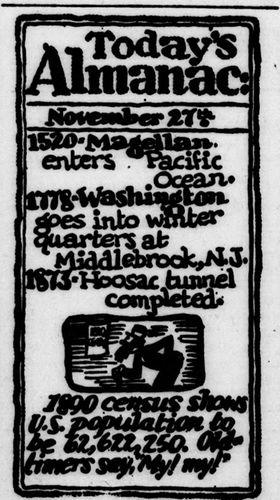 Today's
Almanac:
November 27th
1520-Magellan.
enters Pacific
Ocean.
1778-Washington
goes into winter
quarters at
Middlebrook, N.J.
1873-Hoosac tunnel
completed.
1890 census shows
U.S. population to
be 62,622,250. Old-
timers say, "My! my!"